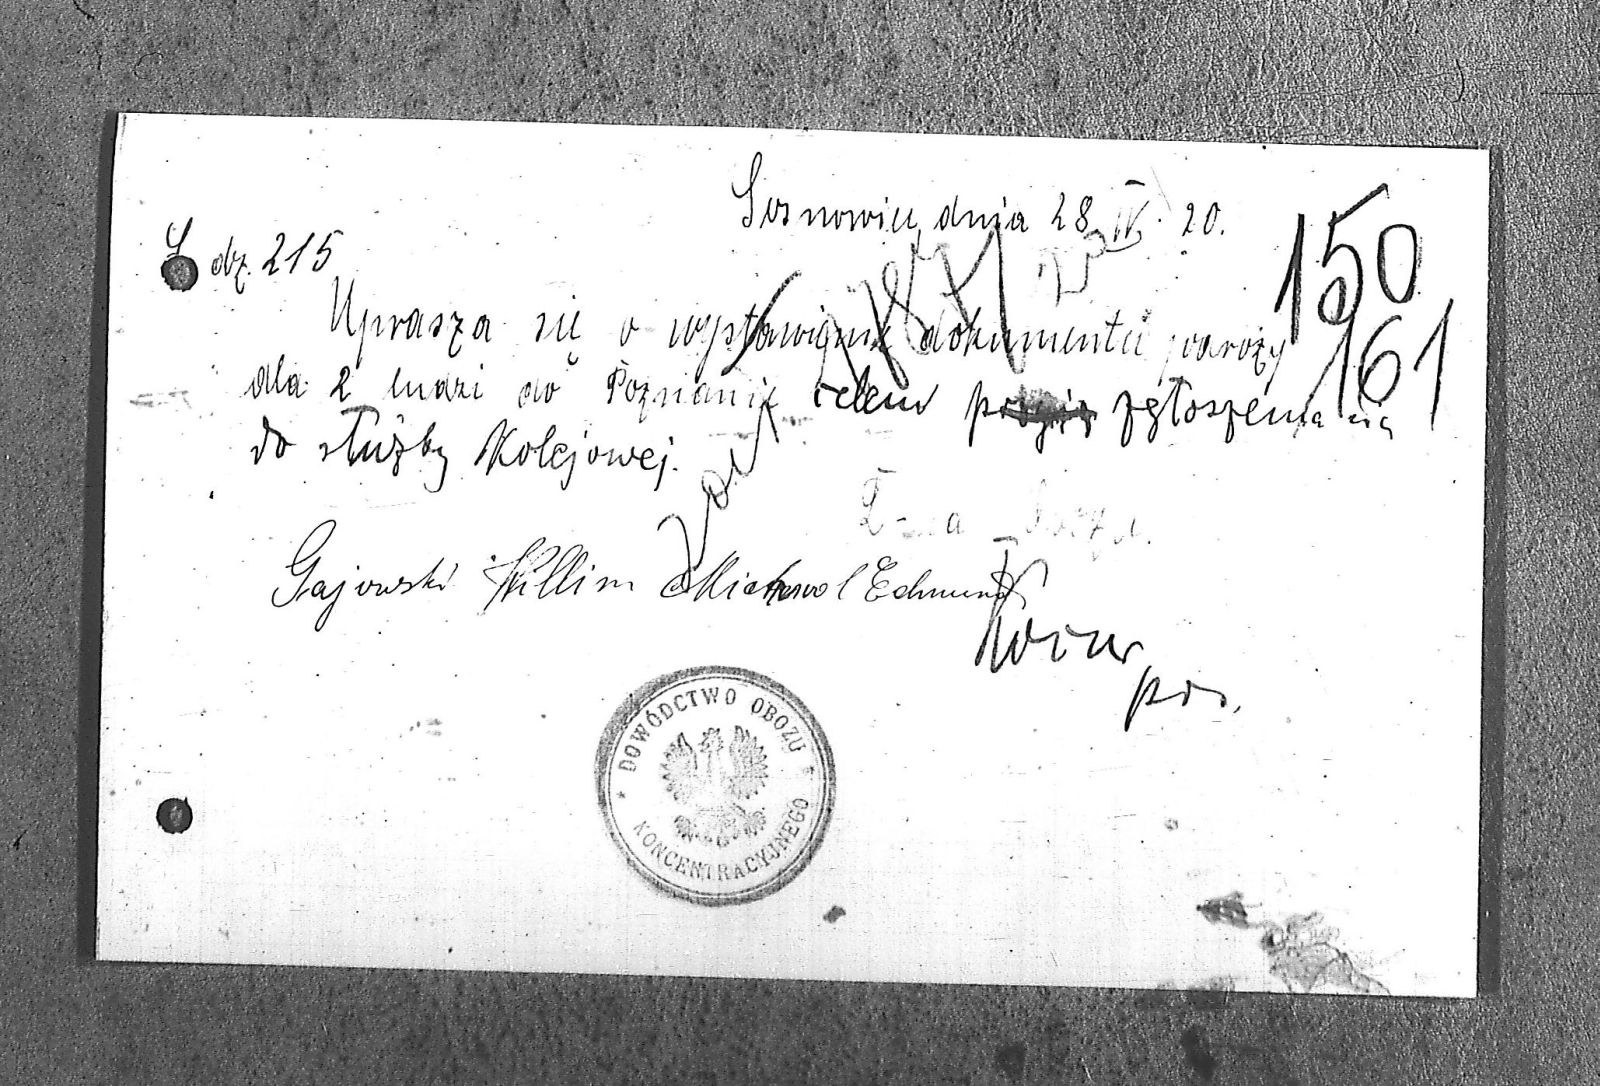 Sosnowice, dnia 28 IV. 20.
L dz. 215
150
161
Uprasza się o wystawienie dokumentu podróży
dla 2 ludzi do Poznania celem zgłoszenia się
do służby Kolejowej.
Gajowski Willim Edmund
por.
* DOWÓDCTWO OBOZU *
KONCENTRACYJNEGO